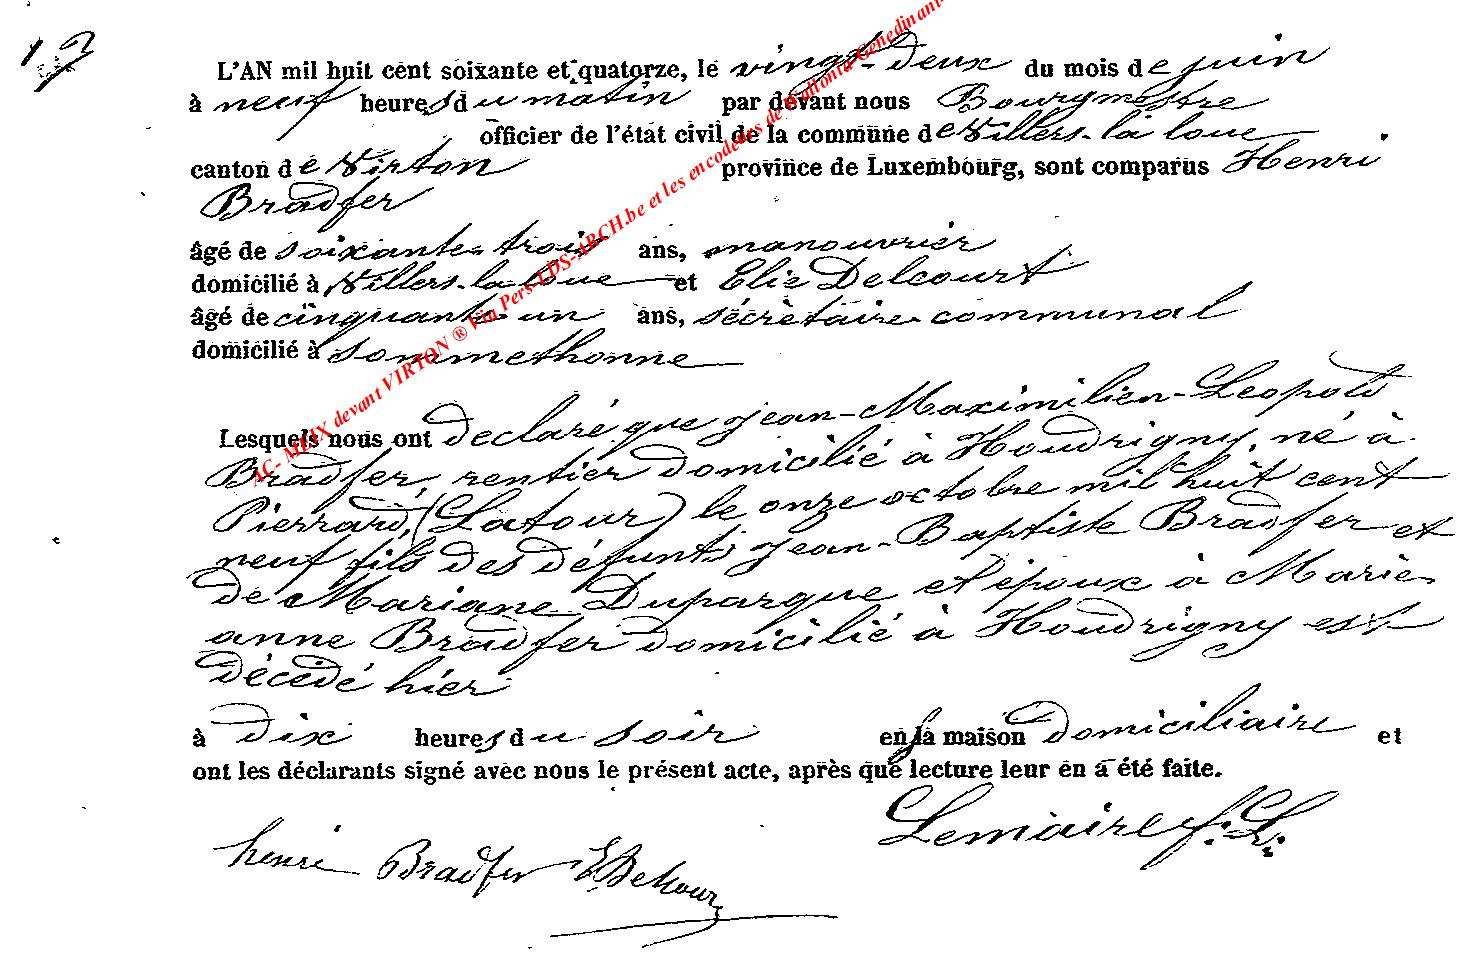 17
L'AN mil huit cent soixante et quatorze, le vingt-deux du mois de juin
à neuf heures du matin par devant nous Bourgmestre
officier de l'état civil de la commune de Villers-la loue
canton de Virton province de Luxembourg, sont comparus Henri
Bradfer
âgé de soixante-trois ans, manouvrier
domicilié à Villers-la-loue et Elie Delcourt
âgé de cinquante-un ans, sécrètaire communal
domicilié à Sommethonne
Lesquels nous ont declaré que Jean-Maximilien-Leopold
Bradfer, rentier domicilié à Houdrigny, né à
Pierrard, (Latour) le onze octobre mil huit cent
neuf fils des défunts Jean-Baptiste Bradfer et
de Mariane Duparque et époux à Marie-
anne Bradfer domicilié à Houdrigny est
décédé hier
à dix heures du soir en la maison domiciliaire et
ont les déclarants signé avec nous le présent acte, après que lecture leur en a été faite.
Lemaire f. L.
henri Bradfer E Delcour
AC- MEIX devant VIRTON ® Via Pers-LDS-ARCH.be et les encodeurs de Wallonia Genedinant